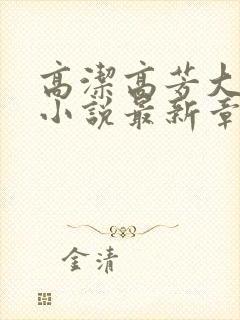 高潔高芳大
小說最新章
金清